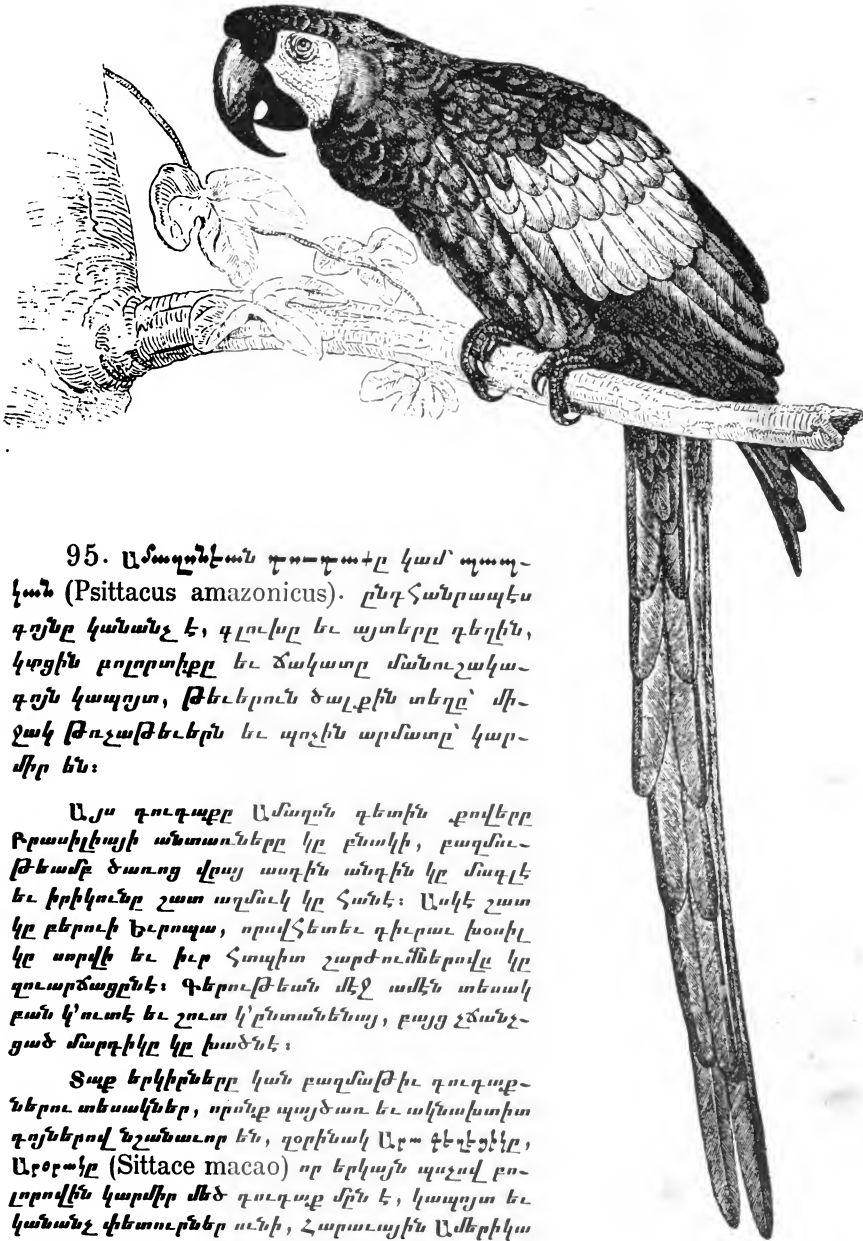 95. Ամազոնէան դուդաքը կամ պապ-
կան (Psittacus amazonicus). ընդհանրապէս
գոյնը կանանչ է, գլուխը եւ այտերը դեղին,
կտցին բոլորտիքը եւ ճակատը մանուշակա-
գոյն կապոյտ, թեւերուն ծալքին տեղը՝ մի-
ջակ թռչաթեւերն եւ պոչին արմատը՝ կար-
միր են:
Այս դուդաքը Ամազոն գետին քովերը
Բրասիլիայի անտառները կը բնակի, բազմու-
թեամբ ծառոց վրայ ասդին անդին կը մագլէ
եւ իրիկունը շատ աղմուկ կը հանէ: Ասկէ շատ
կը բերուի Եւրոպա, որովհետեւ դիւրաւ խօսիլ
կը սորվի եւ իւր հտպիտ շարժումներովը կը
զուարճացընէ: Գերութեան մէջ ամէն տեսակ
բան կ'ուտէ եւ շուտ կ'ընտանենայ, բայց չճանչ-
ցած մարդիկը կը խածնէ:
Տաք երկիրները կան բազմաթիւ դուդաք-
ներու տեսակներ, որոնք պայծառ եւ ակնախտիտ
գոյներով նշանաւոր են, զօրինակ Արա գեղեցիկը,
Արօրակը (Sittace macao) որ երկայն պոչով բո-
լորովին կարմիր մեծ դուդաք մըն է, կապոյտ եւ
կանանչ փետուրներ ունի, Հարաւային Ամերիկա